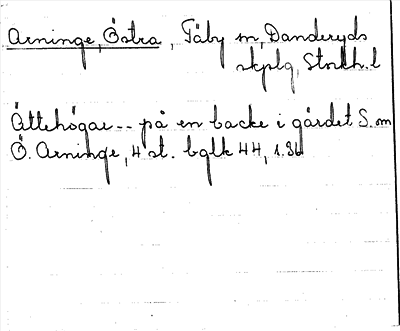 Arninge, Östra, Täby sn, Danderyds
skplg, Stockh. l
Ättehögar -- på en backe i gärdet S. om
Ö. Arninge, 4 st. bglk 44, 1.36